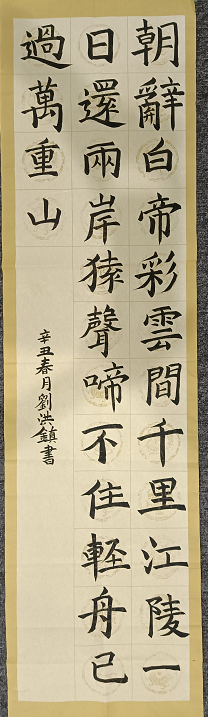 朝辭白帝彩雲間千里江陵一
日還兩岸猿聲啼不住輕舟已
過萬重山
辛丑春月劉洪鎮書